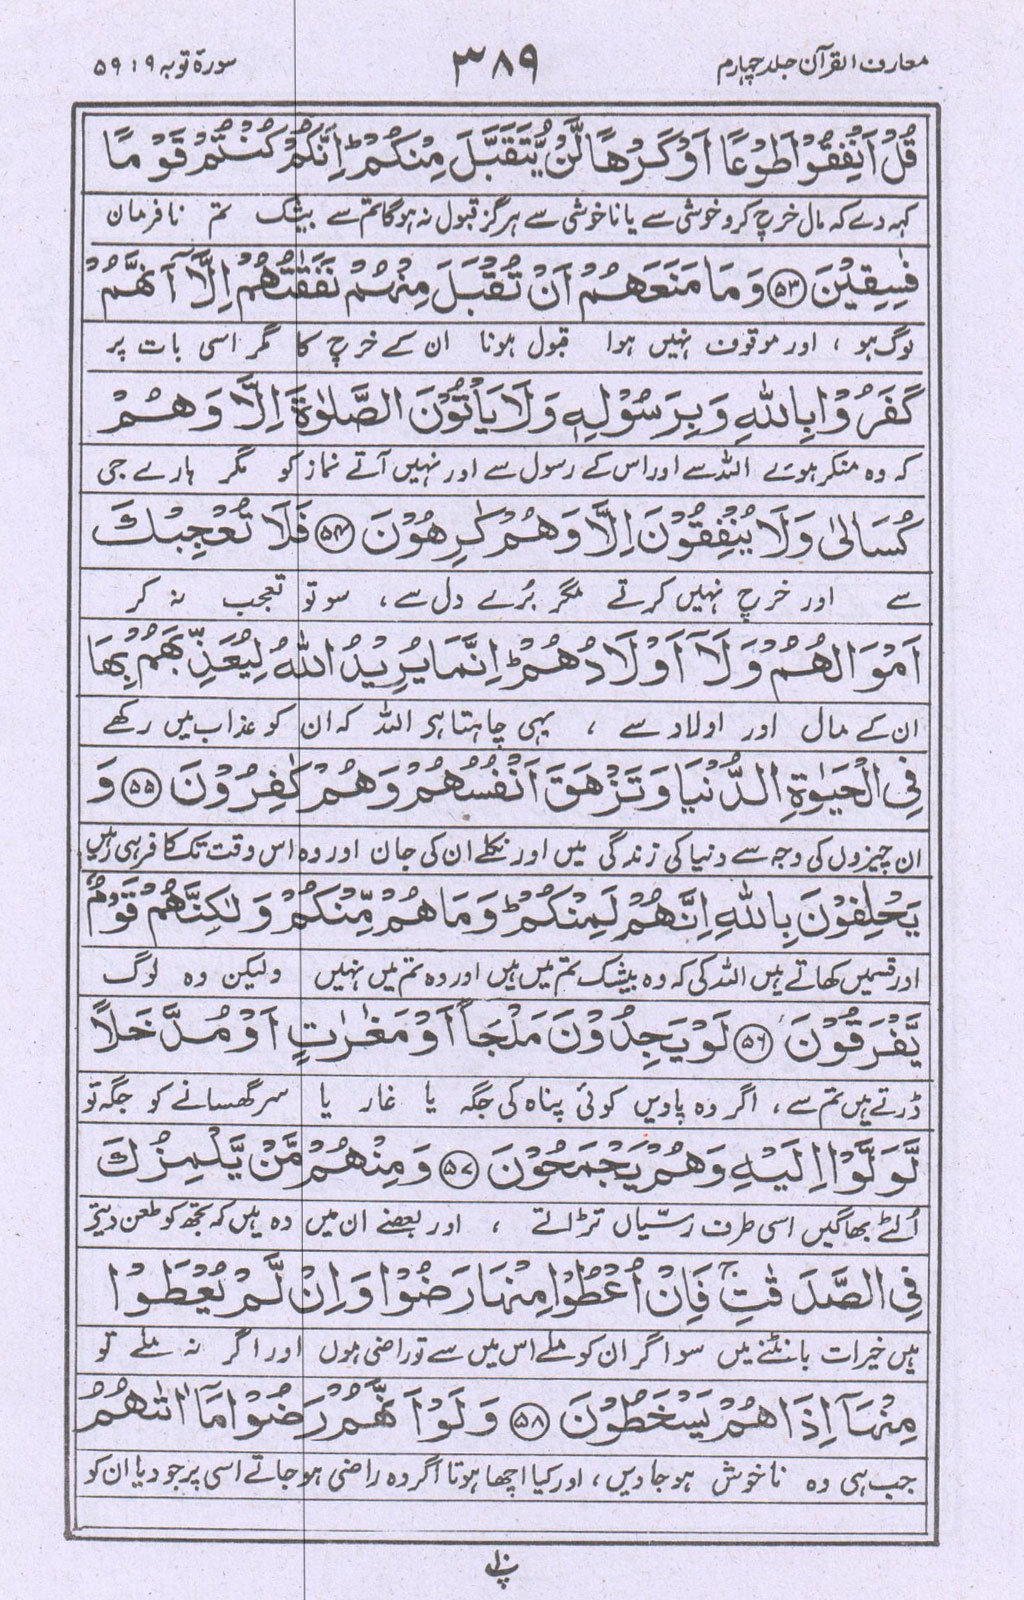 معارف القرآن جلد چہارم
۳۸۹
سورۃ توبہ ۹ : ۵۹
قُلْ اَنْفِقُوْا طَوْعًا اَوْ كَرْهًا لَّنْ يُّتَقَبَّلَ مِنْكُمْ ؕ اِنَّكُمْ كُنْتُمْ قَوْمًا
کہہ دے کہ مال خرچ کرو خوشی سے یا ناخوشی سے ہرگز قبول نہ ہوگا تم سے بیشک تم نافرمان
فٰسِقِيْنَ ﴿۵۳﴾ وَمَا مَنَعَهُمْ اَنْ تُقْبَلَ مِنْهُمْ نَفَقٰتُهُمْ اِلَّاۤ اَنَّهُمْ
لوگ ہو ، اور موقوف نہیں ہوا قبول ہونا ان کے خرچ کا مگر اسی بات پر
كَفَرُوْا بِاللّٰهِ وَبِرَسُوْلِهٖ وَلَا يَاْتُوْنَ الصَّلٰوةَ اِلَّا وَهُمْ
کہ وہ منکر ہوئے اللہ سے اور اس کے رسول سے اور نہیں آتے نماز کو مگر ہارے جی
كُسَالٰى وَلَا يُنْفِقُوْنَ اِلَّا وَهُمْ كٰرِهُوْنَ ﴿۵۴﴾ فَلَا تُعْجِبْكَ
سے اور خرچ نہیں کرتے مگر بُرے دل سے ، سو تو تعجب نہ کر
اَمْوَالُهُمْ وَلَاۤ اَوْلَادُهُمْ ؕ اِنَّمَا يُرِيْدُ اللّٰهُ لِيُعَذِّبَهُمْ بِهَا
ان کے مال اور اولاد سے ، یہی چاہتا ہی اللہ کہ ان کو عذاب میں رکھے
فِي الْحَيٰوةِ الدُّنْيَا وَتَزْهَقَ اَنْفُسُهُمْ وَهُمْ كٰفِرُوْنَ ﴿۵۵﴾ وَ
ان چیزوں کی وجہ سے دنیا کی زندگی میں اور نکلے ان کی جان اور وہ اس وقت تک کافر ہی رہیں
يَحْلِفُوْنَ بِاللّٰهِ اِنَّهُمْ لَمِنْكُمْ ؕ وَمَا هُمْ مِّنْكُمْ وَلٰكِنَّهُمْ قَوْمٌ
اور قسمیں کھاتے ہیں اللہ کی کہ وہ بیشک تم میں ہیں اور وہ تم میں نہیں ولیکن وہ لوگ
يَّفْرَقُوْنَ ﴿۵۶﴾ لَوْ يَجِدُوْنَ مَلْجَاً اَوْ مَغٰرٰتٍ اَوْ مُدَّخَلًا
ڈرتے ہیں تم سے ، اگر وہ پاویں کوئی پناہ کی جگہ یا غار یا سر گھسانے کو جگہ تو
لَّوَلَّوْا اِلَيْهِ وَهُمْ يَجْمَحُوْنَ ﴿۵۷﴾ وَمِنْهُمْ مَّنْ يَّلْمِزُكَ
اُلٹے بھاگیں اسی طرف رسّیاں تڑاتے ، اور بعضے ان میں وہ ہیں کہ تجھ کو طعن دیتے
فِي الصَّدَقٰتِ ۚ فَاِنْ اُعْطُوْا مِنْهَا رَضُوْا وَاِنْ لَّمْ يُعْطَوْا
ہیں خیرات بانٹنے میں سو اگر ان کو ملے اس میں سے تو راضی ہوں اور اگر نہ ملے تو
مِنْهَاۤ اِذَا هُمْ يَسْخَطُوْنَ ﴿۵۸﴾ وَلَوْ اَنَّهُمْ رَضُوْا مَاۤ اٰتٰىهُمُ
جب ہی وہ ناخوش ہو جاویں ، اور کیا اچھا ہوتا اگر وہ راضی ہو جاتے اسی پر جو دیا ان کو